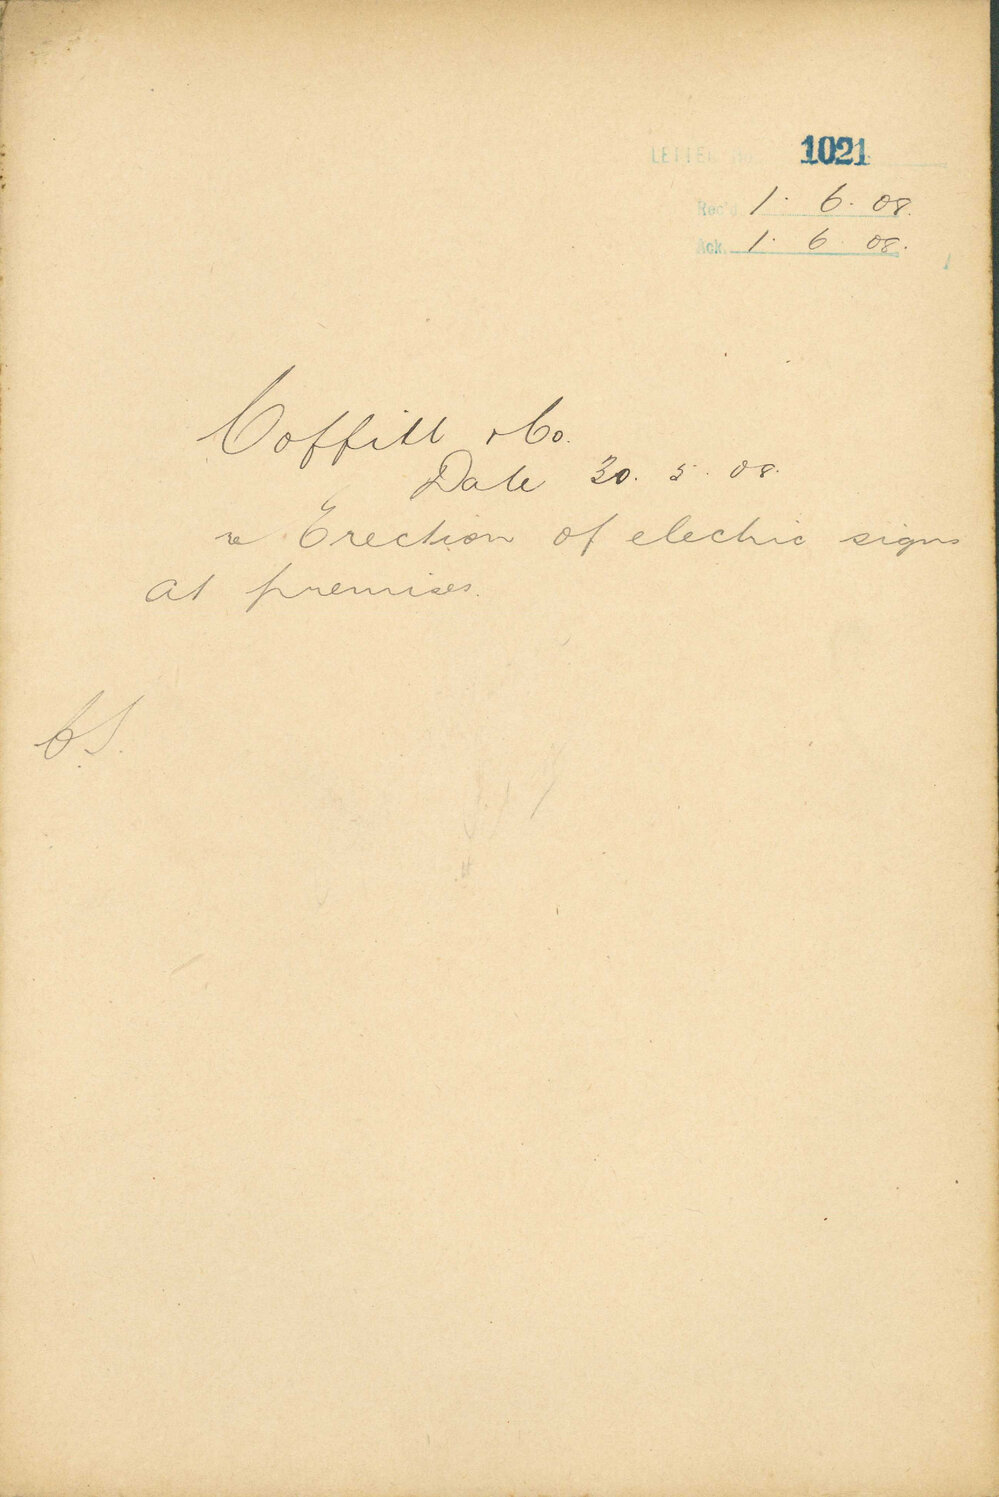 LETTER No. 1021
Rec'd 1. 6. 08.
Ack. 1. 6. 08.
Coffill & Co.
Date 30. 5. 08.
re Erection of electric signs
at premises.